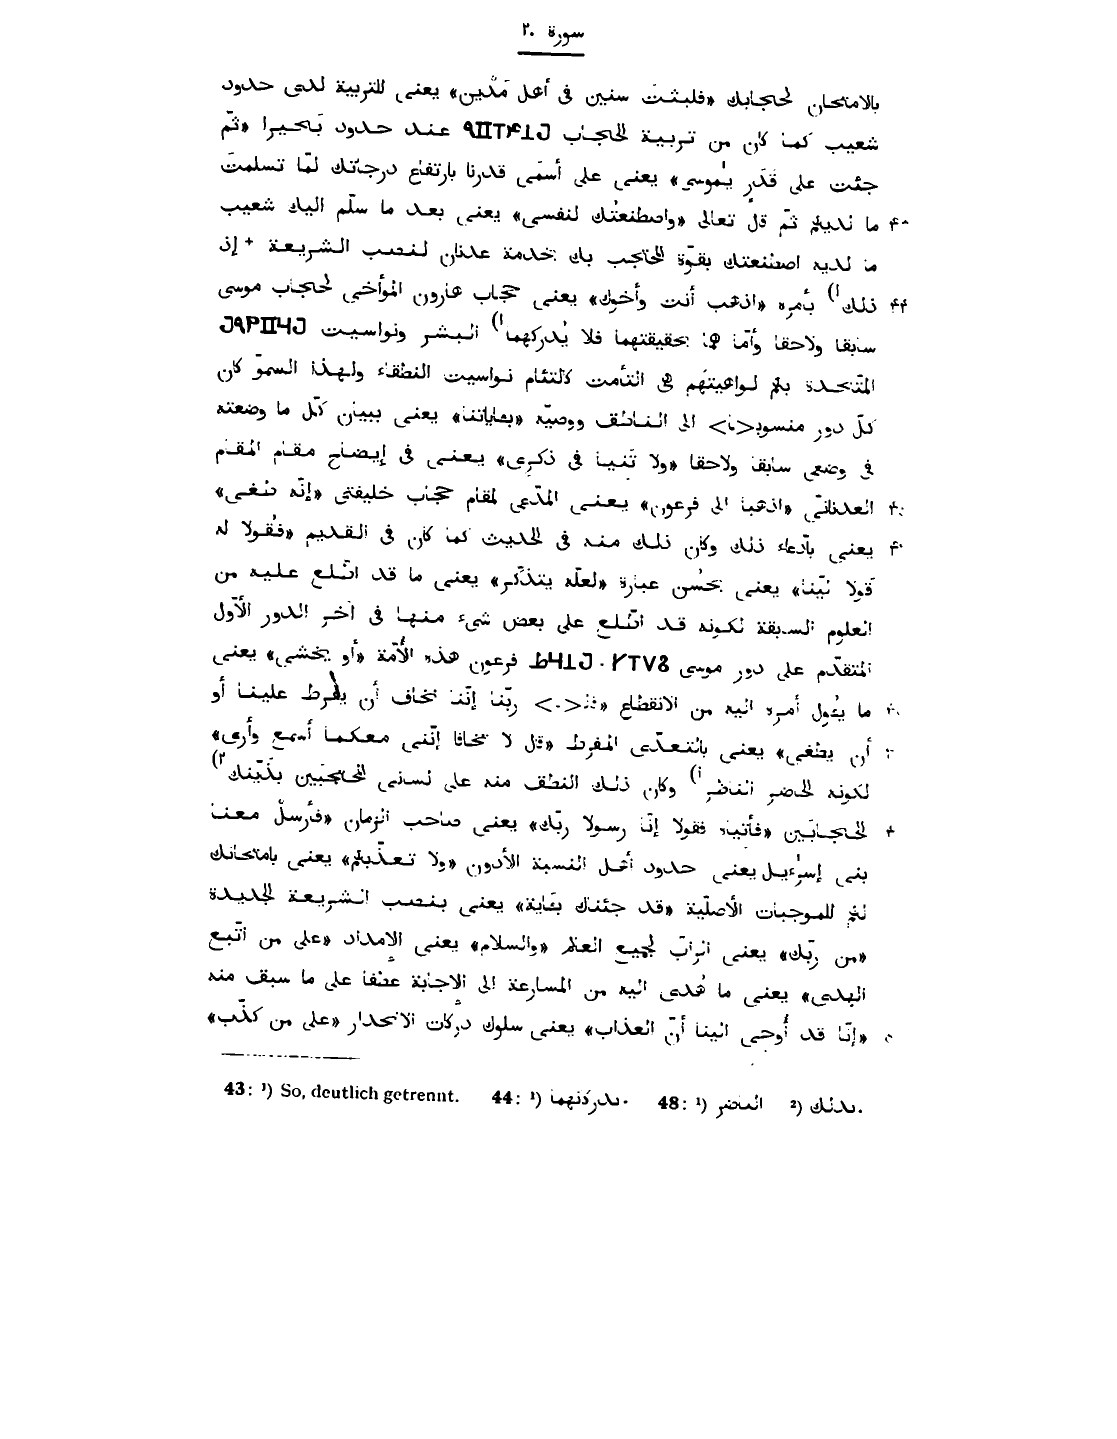 سورة ٢٠
بالامتحان لحجابك «فلبثتَ سنين فى أهل مَدْين» يعنى للتربية لدى حدود
شعيب كما كان من تربية الحجاب عند حدود بَحيرا «ثمّ
جئت على قَدَرٍ يٰموسى» يعنى على أسمَى قدرنا بارتفاع درجاتك لمّا تسلمتَ
ما لديهم ثمّ قال تعالى «واصطنعتُك لنفسى» يعنى بعد ما سلّم اليك شعيب
ما لديه اصطنعتك بقوّة الحاجب بك بخدمة عدنان لنصب الشريعة + إذ
ذلك¹) بأمره «اذهب أنت وأخوك» يعنى حجاب هارون المؤاخى لحجاب موسى
سابقا ولاحقا وأمّا هما بحقيقتهما فلا يُدركهما¹) البشر ونواسيت
المتّحدة بهم لواعيتَهم هى التأمت كالتئام نواسيت النطقاء ولهذا السموّ كان
كلّ دور منسوبا<ا> الى الناطق ووصيّه «بـٔاياتنا» يعنى ببيان كلّ ما وضعته
فى وضعى سابقا ولاحقا «ولا تَنيا فى ذكرى» يعنى فى إيضاح مقام المقام
العدنانىّ «اذهبا الى فرعون» يعنى المدّعى لمقام حجاب خليفتى «إنّه طغى»
يعنى بادّعاء ذلك وكان ذلك منه فى الحديث كما كان فى القديم «فقُولا له
قولا ليّنا» يعنى بحُسن عبارة «لعلّه يتذكّر» يعنى ما قد اطّلع عليه من
العلوم السابقة لكونه قد اطّلع على بعض شىء منها فى آخر الدور الأوّل
المتقدّم على دور موسى فرعون هذه الأُمّة «أو يخشى» يعنى
ما يؤول أمره اليه من الانقطاع «قا<لا> ربّنا إنّنا نخاف أن يفرط علينا أو
أن يطغى» يعنى بالتعدّى المفرط «قال لا تخافا إنّنى معكما أسمع وأرى»
لكونه الحاضر الناظر¹) وكان ذلك النطق منه على لسانى الحاجبَين بذَيْنك²)
الحجابَين «فأتياه فقولا إنّا رسولا ربّك» يعنى صاحب الزمان «فأرسلْ معنا
بنى إسرٰءيل يعنى حدود أهل النسبة الأدون «ولا تعذّبهم» يعنى بامتحانك
لهم للموجبات الأصليّة «قد جئناك بـٔاية» يعنى بنصب الشريعة الجديدة
«من ربّك» يعنى الرابّ لجميع العالم «والسلام» يعنى الإمداد «على من اتّبع
الهدى» يعنى ما هُدى اليه من المسارعة الى الإجابة عطفا على ما سبق منه
«إنّا قد أُوحِى الينا أنّ العذاب» يعنى سلوك دركات الانحدار «على من كذّب»
43: ¹) So, deutlich getrennt. 44: ¹) يدركنهما. 48: ¹) الناضر ²) بذلك.